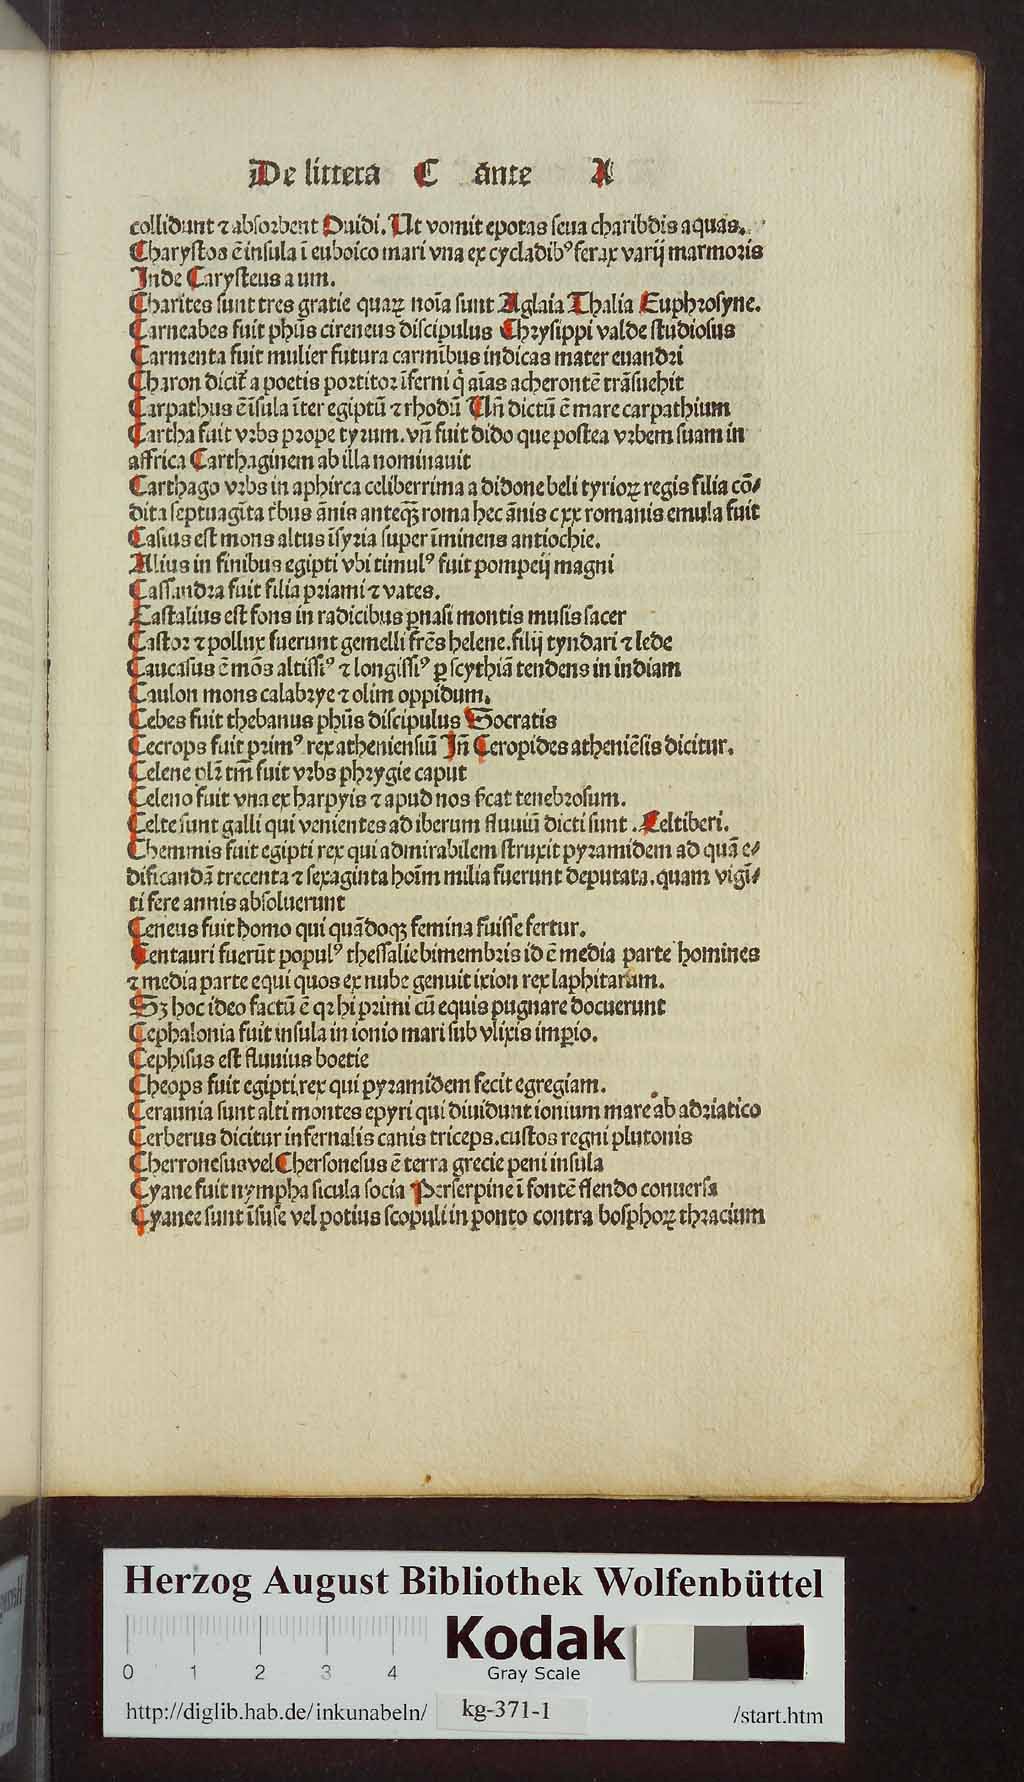 De littera C ãnte A
collidunt ⁊ absorbent Ouidi. Ut vomit epotas seua charibdis aquas.
Charystos ẽ insula ĩ euboico mari vna ex cycladibꝰ ferax varij marmoris
Inde Carysteus a um.
Charites sunt tres gratie quaꝝ noĩa sunt Aglaia Thalia Euphrosyne.
Carneabes fuit phūs cireneus discipulus Chrysippi valde studiosus
Carmenta fuit mulier futura carmĩbus indicas mater euandri
Charon dicit᷑ a poetis portitor ĩferni q̇ aĩas acherontẽ trãsuehit
Carpathus ẽ ĩsula ĩter egiptũ ⁊ rhodũ Uñ dictũ ẽ mare carpathium
Cartha fuit vrbs prope tyrum. vñ fuit dido que postea vrbem suam in
affrica Carthaginem ab illa nominauit
Carthago vrbs in aphirca celiberrima a didone beli tyrioꝝ regis filia cõ⸗
dita septuagĩta tͥbus ãnis anteqꝫ roma hec ãnis cxx romanis emula fuit
Casius est mons altus ĩsyria super ĩminens antiochie.
Alius in finibus egipti vbi timulꝰ fuit pompeij magni
Cassandra fuit filia priami ⁊ vates.
Castalius est fons in radicibus ꝑnasi montis musis sacer
Castor ⁊ pollux fuerunt gemelli fr̃es helene. filij tyndari ⁊ lede
Caucasus ẽ mõs altissiꝰ ⁊ longissiꝰ ꝑ scythiã tendens in indiam
Caulon mons calabrye ⁊ olim oppidum.
Cebes fuit thebanus phūs discipulus Socratis
Cecrops fuit primꝰ rex atheniensiũ Iñ Ceropides atheniẽsis dicitur.
Celene plr̃ tm̃ fuit vrbs phrygie caput
Celeno fuit vna ex harpyis ⁊ apud nos sͨcat tenebrosum.
Celte sunt galli qui venientes ad iberum fluuiũ dicti sunt. Celtiberi.
Chemmis fuit egipti rex qui admirabilem struxit pyramidem ad quã e⸗
dificandã trecenta ⁊ sexaginta hoĩm milia fuerunt deputata. quam vigĩ⸗
ti fere annis absoluerunt
Ceneus fuit homo qui quãdoqꝫ femina fuisse fertur.
Centauri fuerũt populꝰ thessalie bimembris id ẽ media parte homines
⁊ media parte equi quos ex nube genuit ixion rex laphitarum.
Sꝫ hoc ideo factũ ẽ qꝛ hi primi cũ equis pugnare docuerunt
Cephalonia fuit insula in ionio mari sub vlixis imꝑio.
Cephisus est fluuius boetie
Cheops fuit egipti rex qui pyramidem fecit egregiam.
Ceraunia sunt alti montes epyri qui diuidunt ionium mare ab adriatico
Cerberus dicitur infernalis canis triceps. custos regni plutonis
Cherronesus vel Chersonesus ẽ terra grecie peni insula
Cyane fuit nympha sicula socia Perserpine ĩ fontẽ flendo conuersa
Cyanee sunt ĩsule vel potius scopuli in ponto contra bosphoꝝ thracium
Herzog August Bibliothek Wolfenbüttel
0 1 2 3 4
Kodak
Gray Scale
http://diglib.hab.de/inkunabeln/ kg-371-1 /start.htm